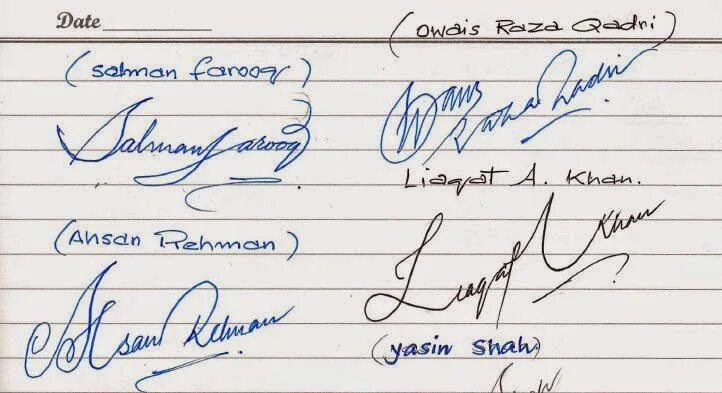 Date
(Owais Raza Qadri)
(Salman farooq)
Owais
Raza Qadri
Salman farooq
Liaqat A. Khan.
(Ahsan Rehman)
Liaqat Khan
Ahsan Rehman
(yasin shah)